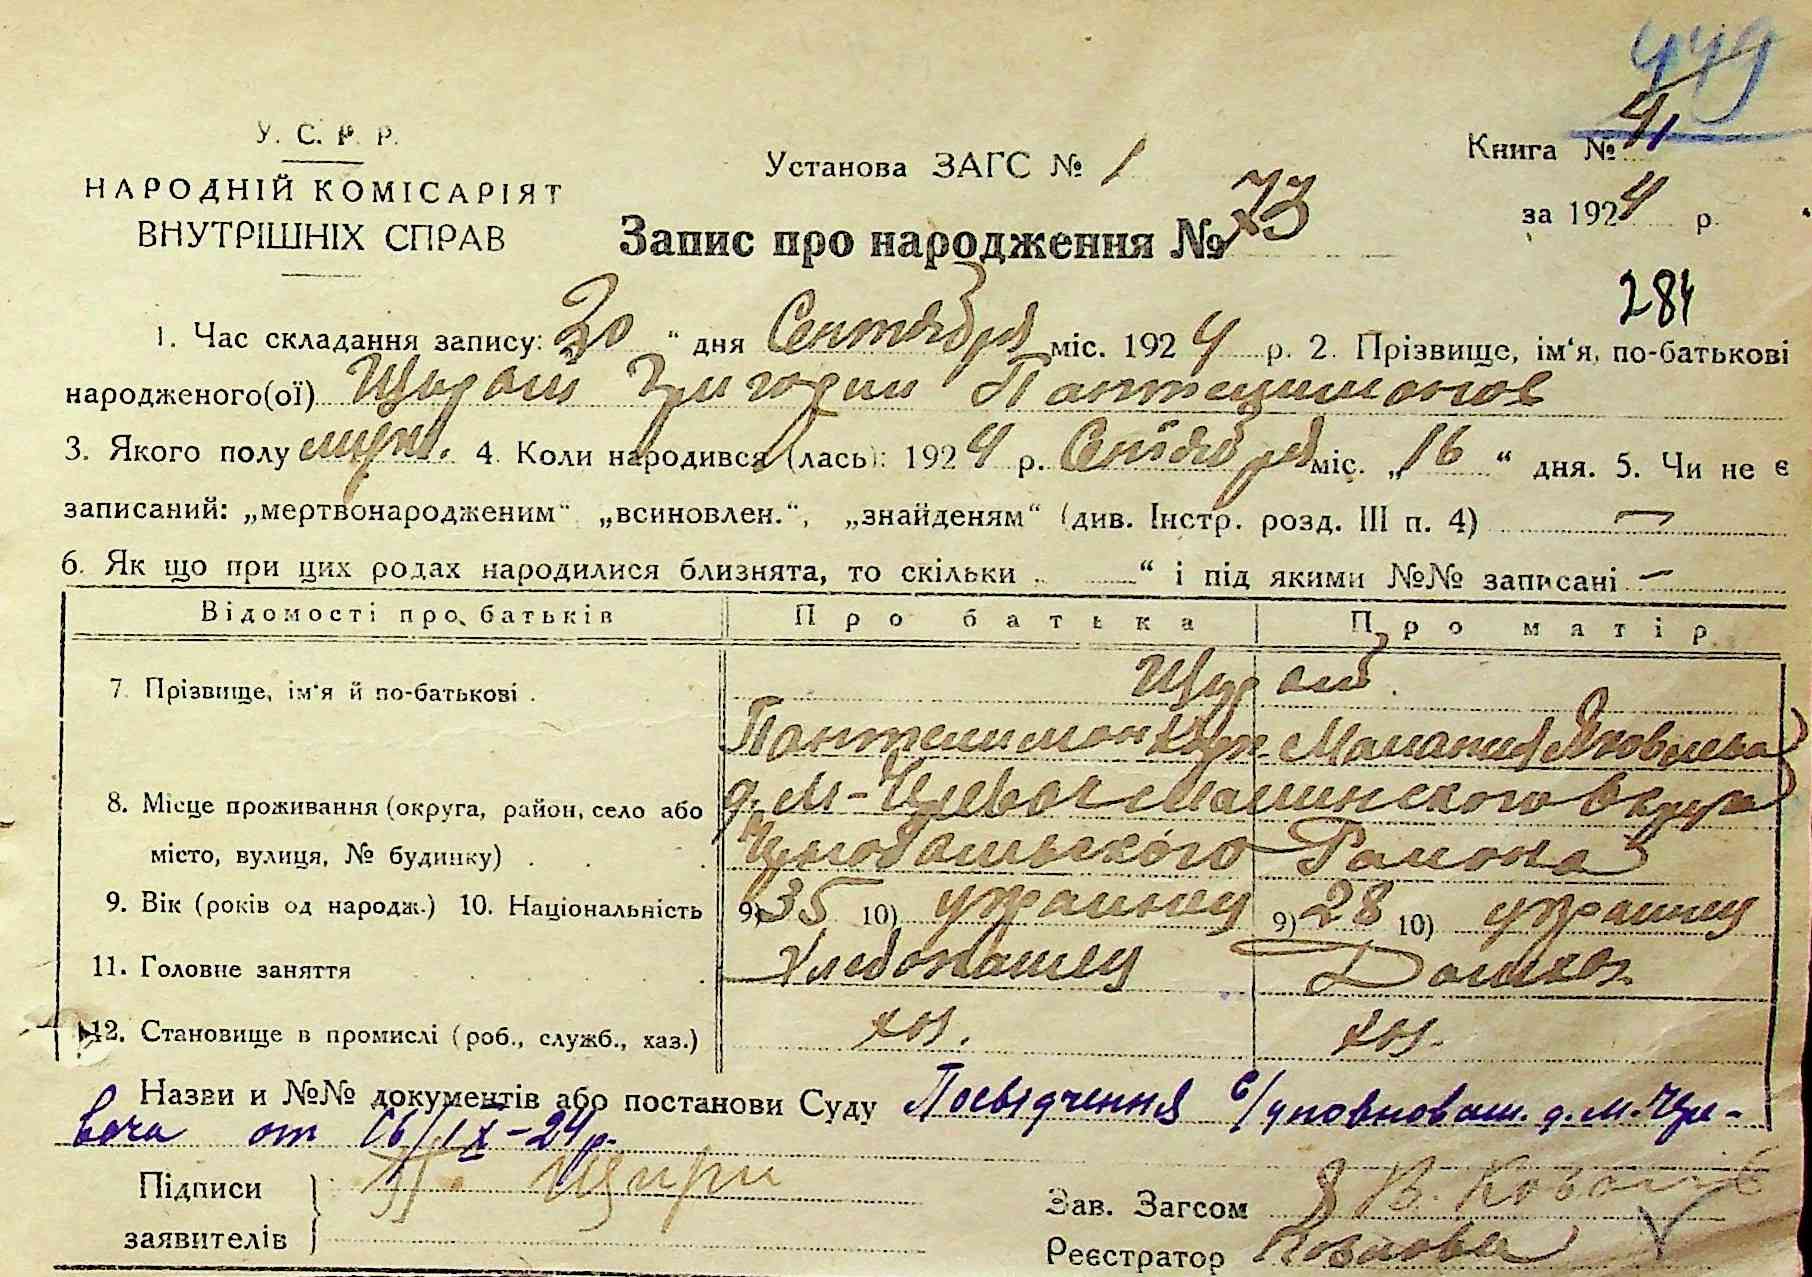 449
У. С. Р. Р.
НАРОДНІЙ КОМІСАРІЯТ
ВНУТРІШНІХ СПРАВ
Установа ЗАГС № 1
Книга № 41
за 1924 р.
Запис про народження № 73
284
1. Час складання запису: 30 " дня Сентября міс. 1924 р. 2. Прізвище, ім'я, по-батькові
народженого(ої) Щирый Григорий Пантелимонов
3. Якого полу муж. 4. Коли народився (лась): 1924 р. Сентября міс. „16“ дня. 5. Чи не є
записаний: „мертвонародженим“ „всиновлен.“, „знайденям“ (див. Інстр. розд. III п. 4) —
6. Як що при цих родах народилися близнята, то скільки „ —“ і під якими №№ записані —
Відомості про батьків Про батька Про матір
7. Прізвище, ім'я й по-батькові .
Пантелимон Мелания Яковлева
8. Місце проживання (округа, район, село або д. М- округа
місто, вулиця, № будинку) . . Района
9. Вік (років од народж.) 10. Національність 9) 35 10) украинец 9) 28 10) украинец
11. Головне заняття . Хлебопашец Домхоз
12. Становище в промислі (роб., служб., хаз.) хоз. хоз.
Назви и №№ документів або постанови Суду Посвідчення с/уповноваж. д. М.
от 16/IX-24р.
Підписи П. Щири
заявителів
Зав. Загсом
Реєстратор